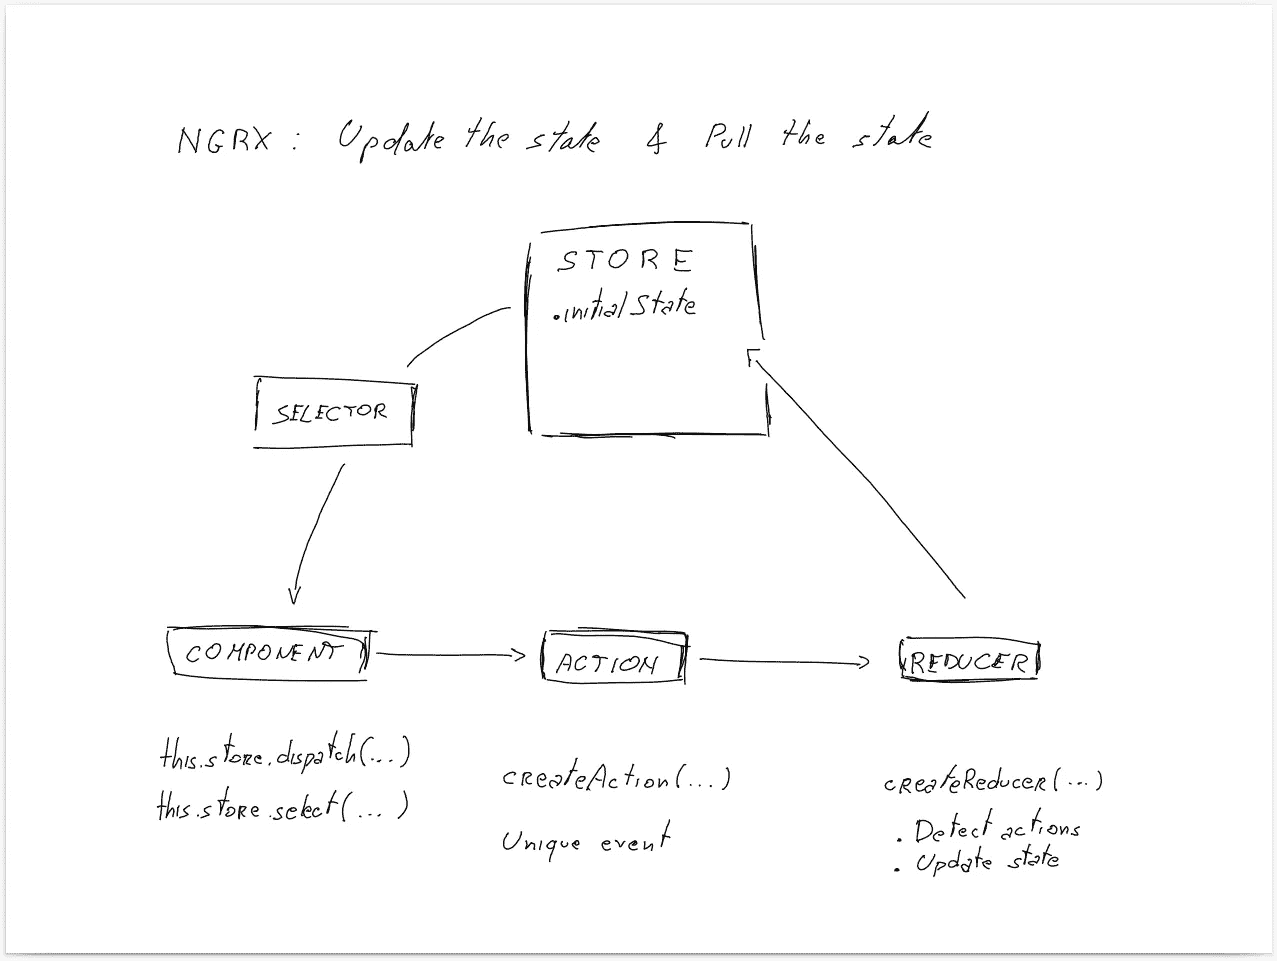 NGRX : Update the state & Pull the state
STORE
.initialState
SELECTOR
COMPONENT
ACTION
REDUCER
this.store.dispatch(...)
this.store.select(...)
createAction(...)
Unique event
createReducer(...)
. Detect actions
. Update state